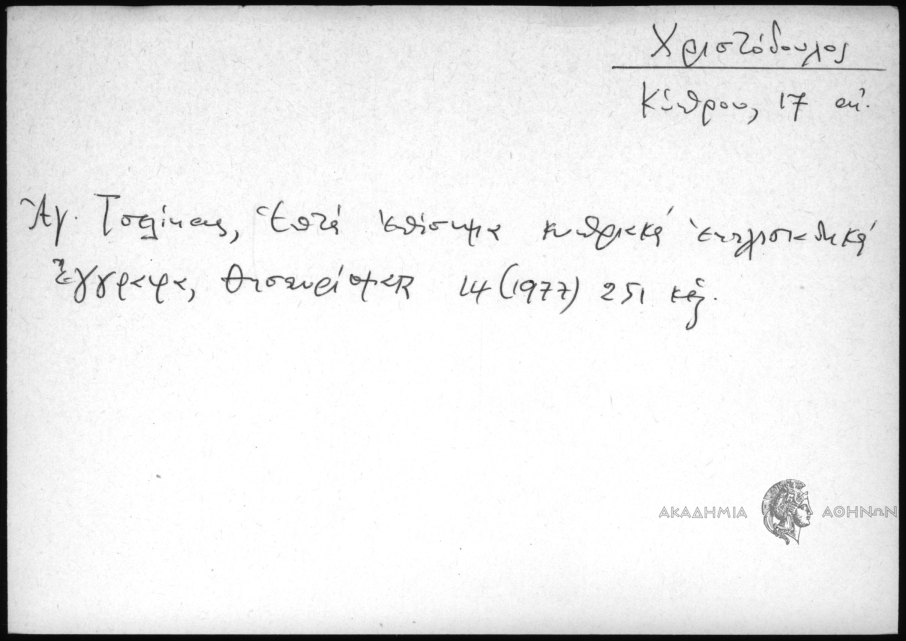 Χριστόδουλος
Κύπρου, 17 αἰ.
Ἀγ. Τσελίκας, Ἑπτά ἐπίσημα κυπριακά ἐκκλησιαστικά
ἔγγραφα, Θησαυρίσματα 14 (1977) 251 κἑξ.
ΑΚΑΔΗΜΙΑ ΑΘΗΝΩΝ